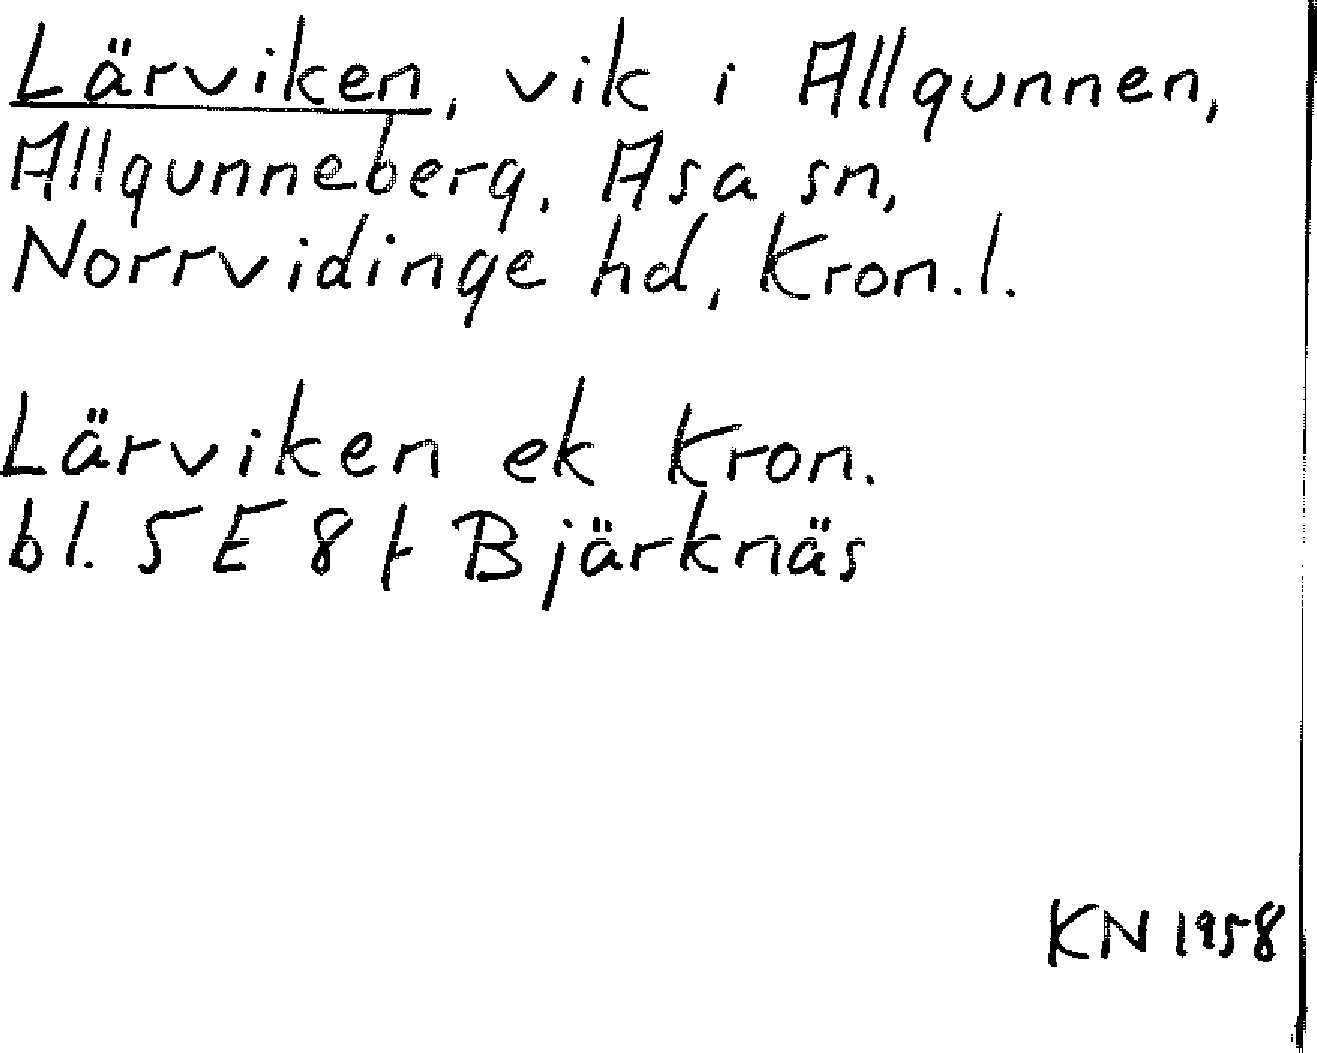 Lärviken, vik i Allgunnen,
Allgunneberg, Asa sn,
Norrvidinge hd, Kron.l.
Lärviken ek Kron.
bl. 5E 8f Bjärknäs
KN 1958